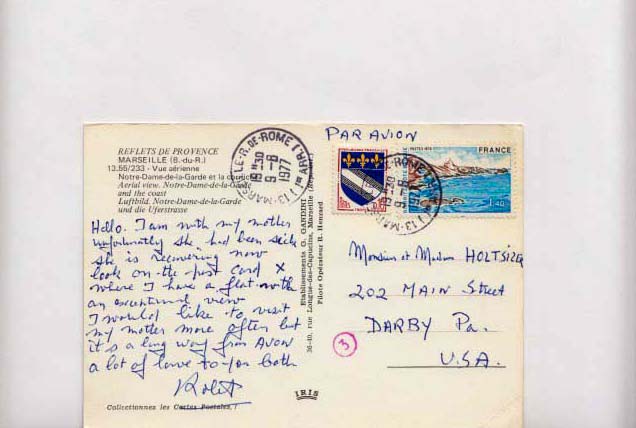 REFLETS DE PROVENCE
MARSEILLE (B.-du-R.)
13.55/233 - Vue aérienne
Notre-Dame-de-la-Garde et la
Aerial view. Notre-Dame-de-la-Garde
and the coast
Luftbild. Notre-Dame-de-la-Garde
und die Uferstrasse
Hello. I am with my mother
unfortunatly she had been sick
she is recovering now
look on the post card X
where I have a flat with
an exceptional view
I would like to visit
my mother more often but
it's a long way from AVON
a lot of love to you both
Collectionnez les Cartes Postales
13-MARSEILLE-R. DE-ROME
9-8
1977
Etablissements G. GANDINI
36-40, rue Longue-des-Capucins, Marseille
Pilote Opérateur R. Henrard
IRIS
PAR AVION
FRANCE
1,40
13-MARSEILLE-R. DE-ROME
9-8
1977
Monsieur et Madame HOLTSIZER
202 MAIN Street
DARBY Pa.
U.S.A.
3